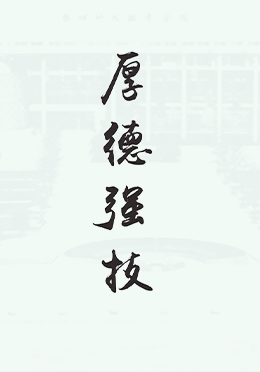 厚德强技